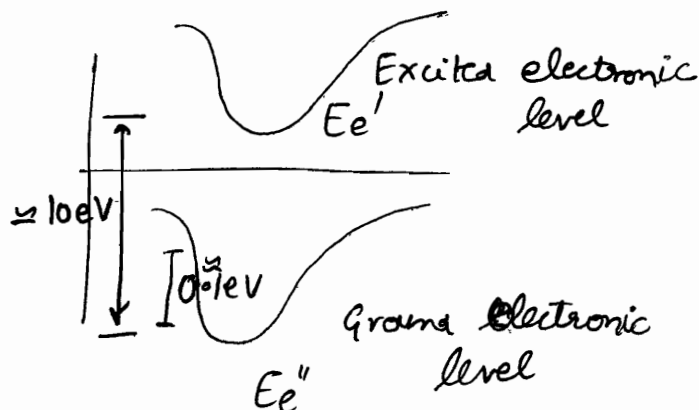 Excited electronic
level
Ee'
≃ 10eV
≈
0.1eV
Ground Electronic
level
Ee"